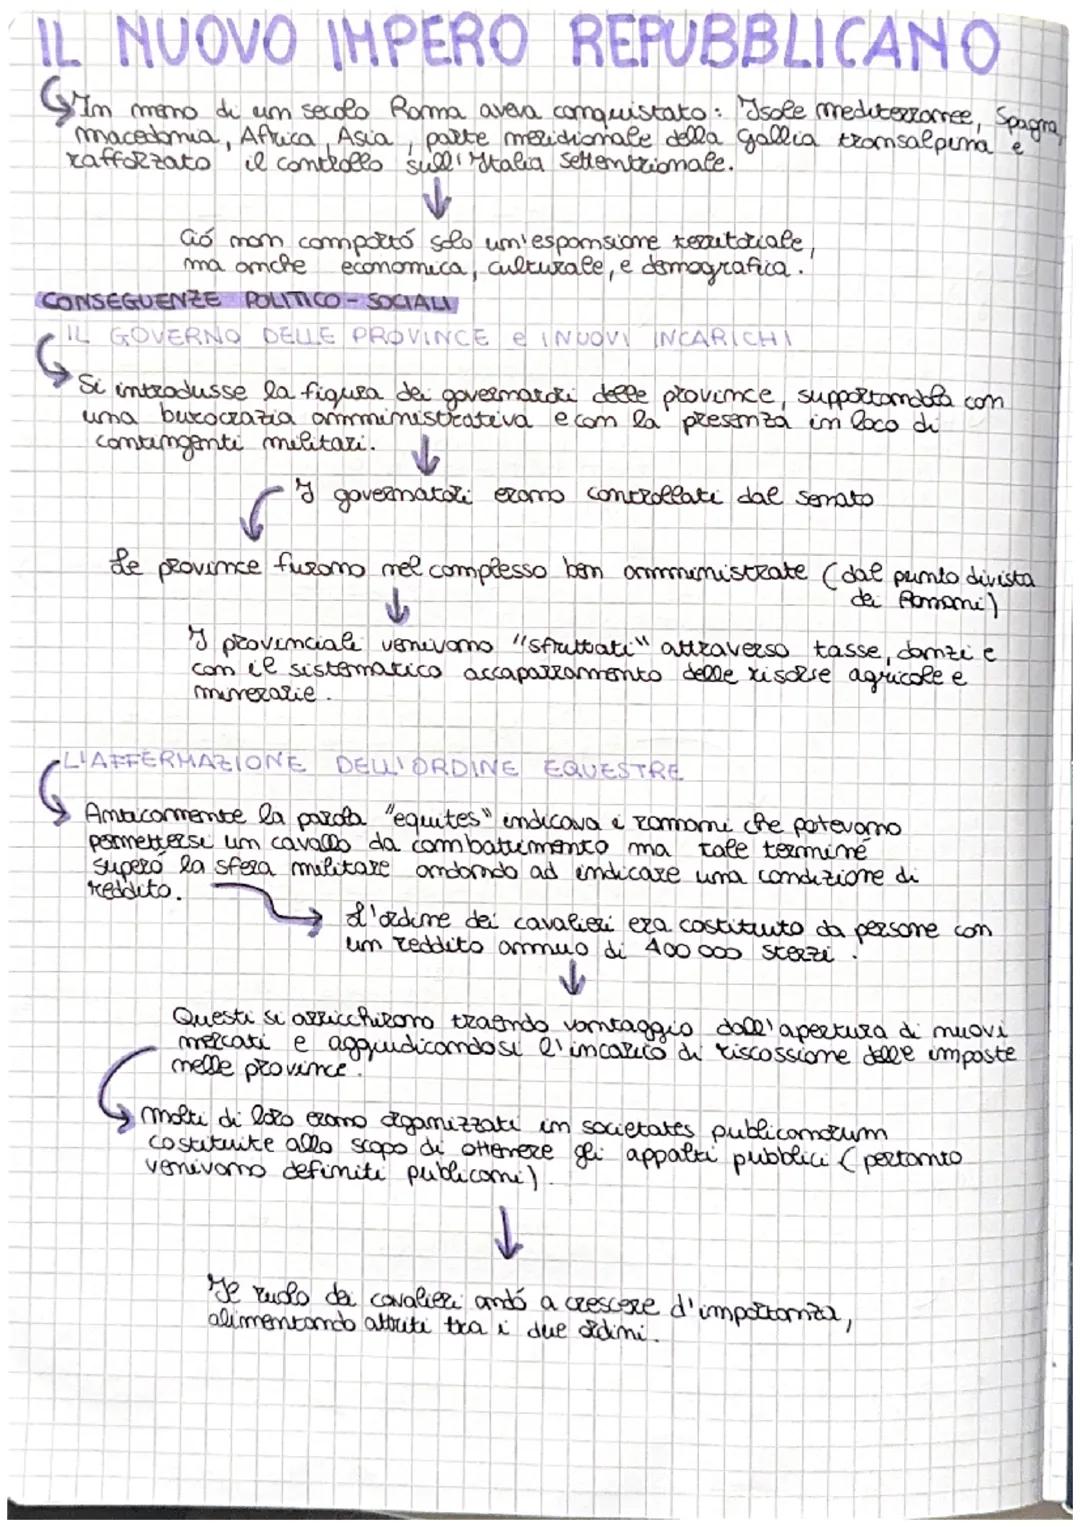 IL NUOVO IMPERO REPUBBLICANO
In meno di un secolo Roma aveva conquistato: Isole mediterranee, Spagna,
macedonia, Africa, Asia, parte meridionale della Gallia transalpina e
rafforzato il controllo sull'Italia settentrionale.
Ció non comportó solo un'espansione territoriale,
ma anche economica, culturale, e demografica.
CONSEGUENZE POLITICO - SOCIALI
IL GOVERNO DELLE PROVINCE e I NUOVI INCARICHI
Si introdusse la figura dei governatori delle province, supportandola con
una burocrazia amministrativa e con la presenza in loco di
contingenti militari.
I governatori erano controllati dal senato
Le province furono nel complesso ben amministrate (dal punto di vista
dei Romani)
I provinciali venivano "sfruttati" attraverso tasse, danzi e
con il sistematico accaparramento delle risorse agricole e
minerarie.
L'AFFERMAZIONE DELL'ORDINE EQUESTRE
Anticamente la parola "equites" indicava i romani che potevano
permettersi un cavallo da combattimento ma tale termine
superó la sfera militare andando ad indicare una condizione di
reddito.
L'ordine dei cavalieri era costituito da persone con
un reddito annuo di 400 000 sterzi.
Questi si arricchirono traendo vantaggio dall'apertura di nuovi
mercati e aggiudicandosi l'incarico di riscossione delle imposte
nelle province.
Molti di loro erano organizzati in societates publicanorum
costituite allo scopo di ottenere gli appalti pubblici (pertanto
venivano definiti publicani).
Il ruolo dei cavalieri andó a crescere d'importanza,
alimentando attriti tra i due ordini.